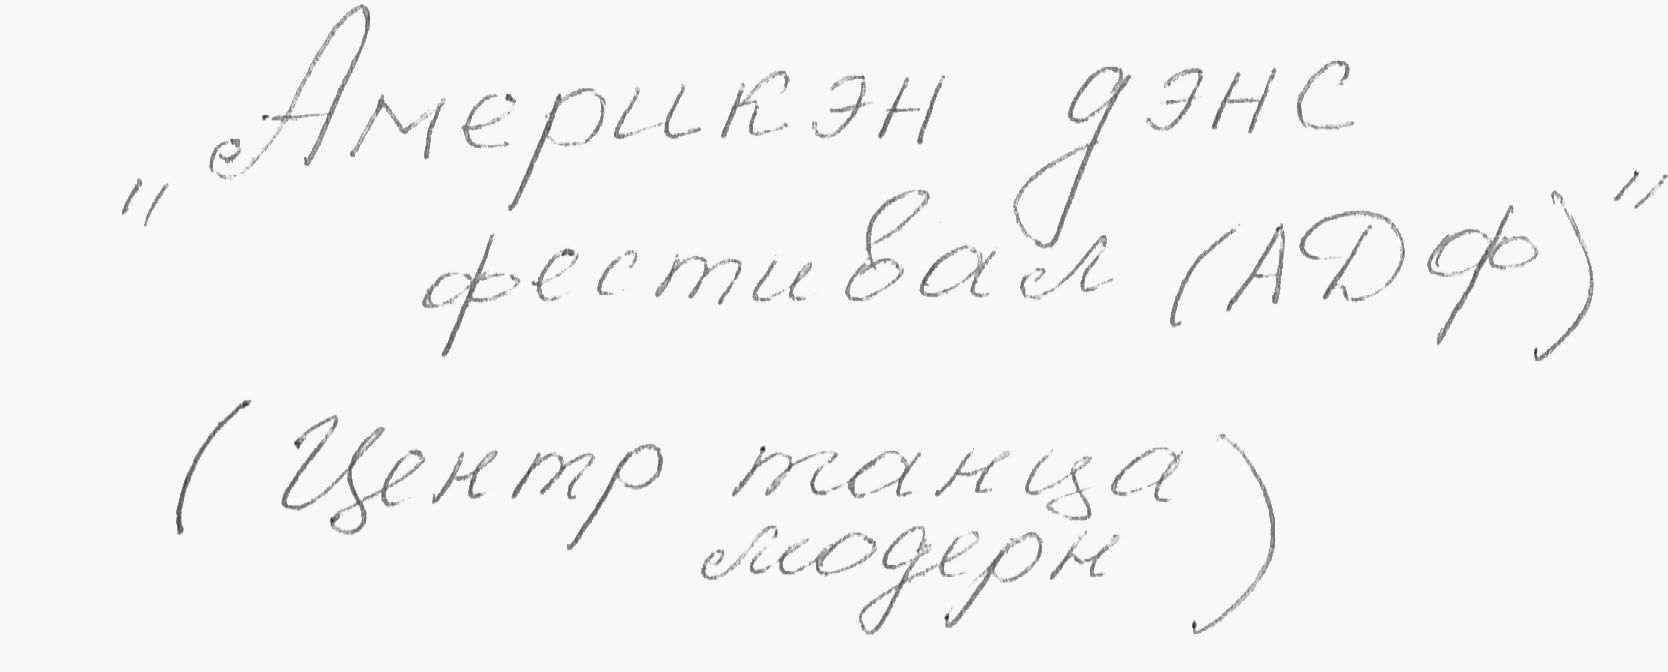 Америкэн дэнс
" фестивал (АДФ)"
(Центр танца
модерн)